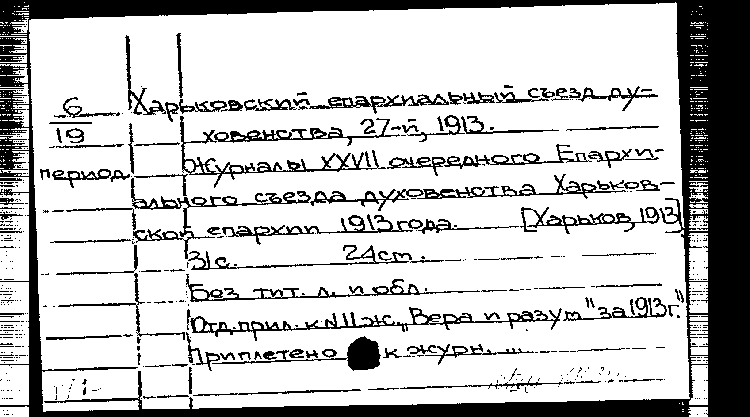 6 Харьковский епархиальный съезд ду-
19 ховенства, 27-й, 1913.
период. Журналы XXVII очередного Епархи-
ального съезда духовенства Харьков-
ской епархии 1913 года. [Харьков, 1913]
31с. 24см.
Без тит. л. и обл.
Отд. прил. к N 11 ж. „Вера и разум" за 1913г."
Приплетено к журн. ...